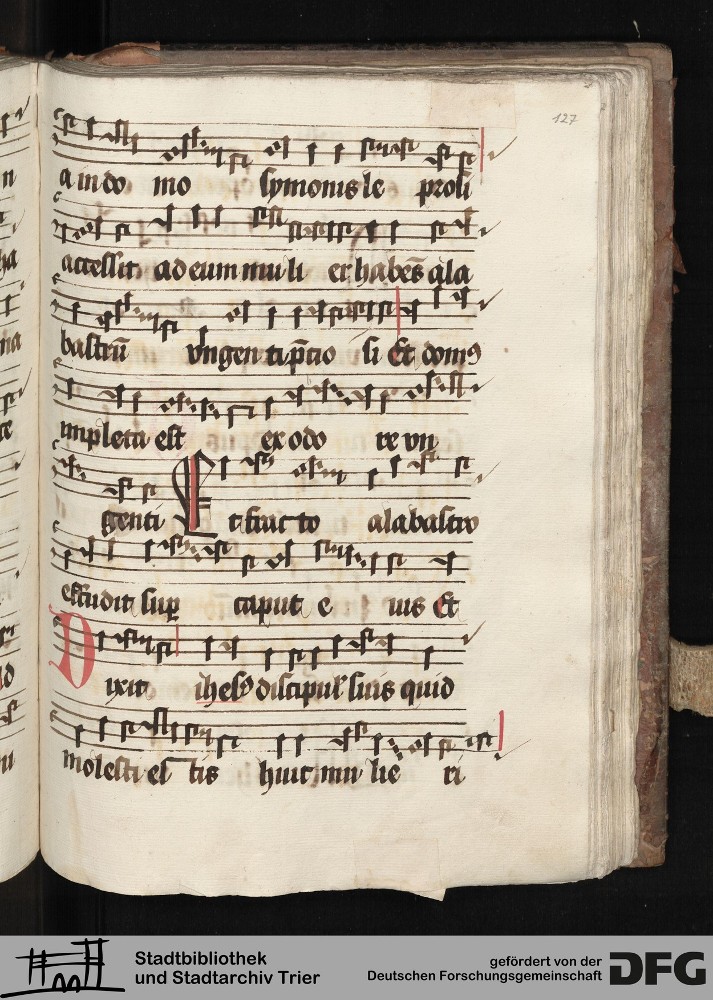 127
a in do mo symonis le prosi
accessit ad eum mu li er habēs ala
bastrū vngen ti p̄cio si Et domꝰ
impleta est ex odo re vn
genti Et fracto alabastro
effudit suꝑ caput e ius Et
Dixit ihesꝰ discipul' suis quid
molesti es tis huic mu lie ri
Stadtbibliothek
und Stadtarchiv Trier
gefördert von der
Deutschen Forschungsgemeinschaft
DFG